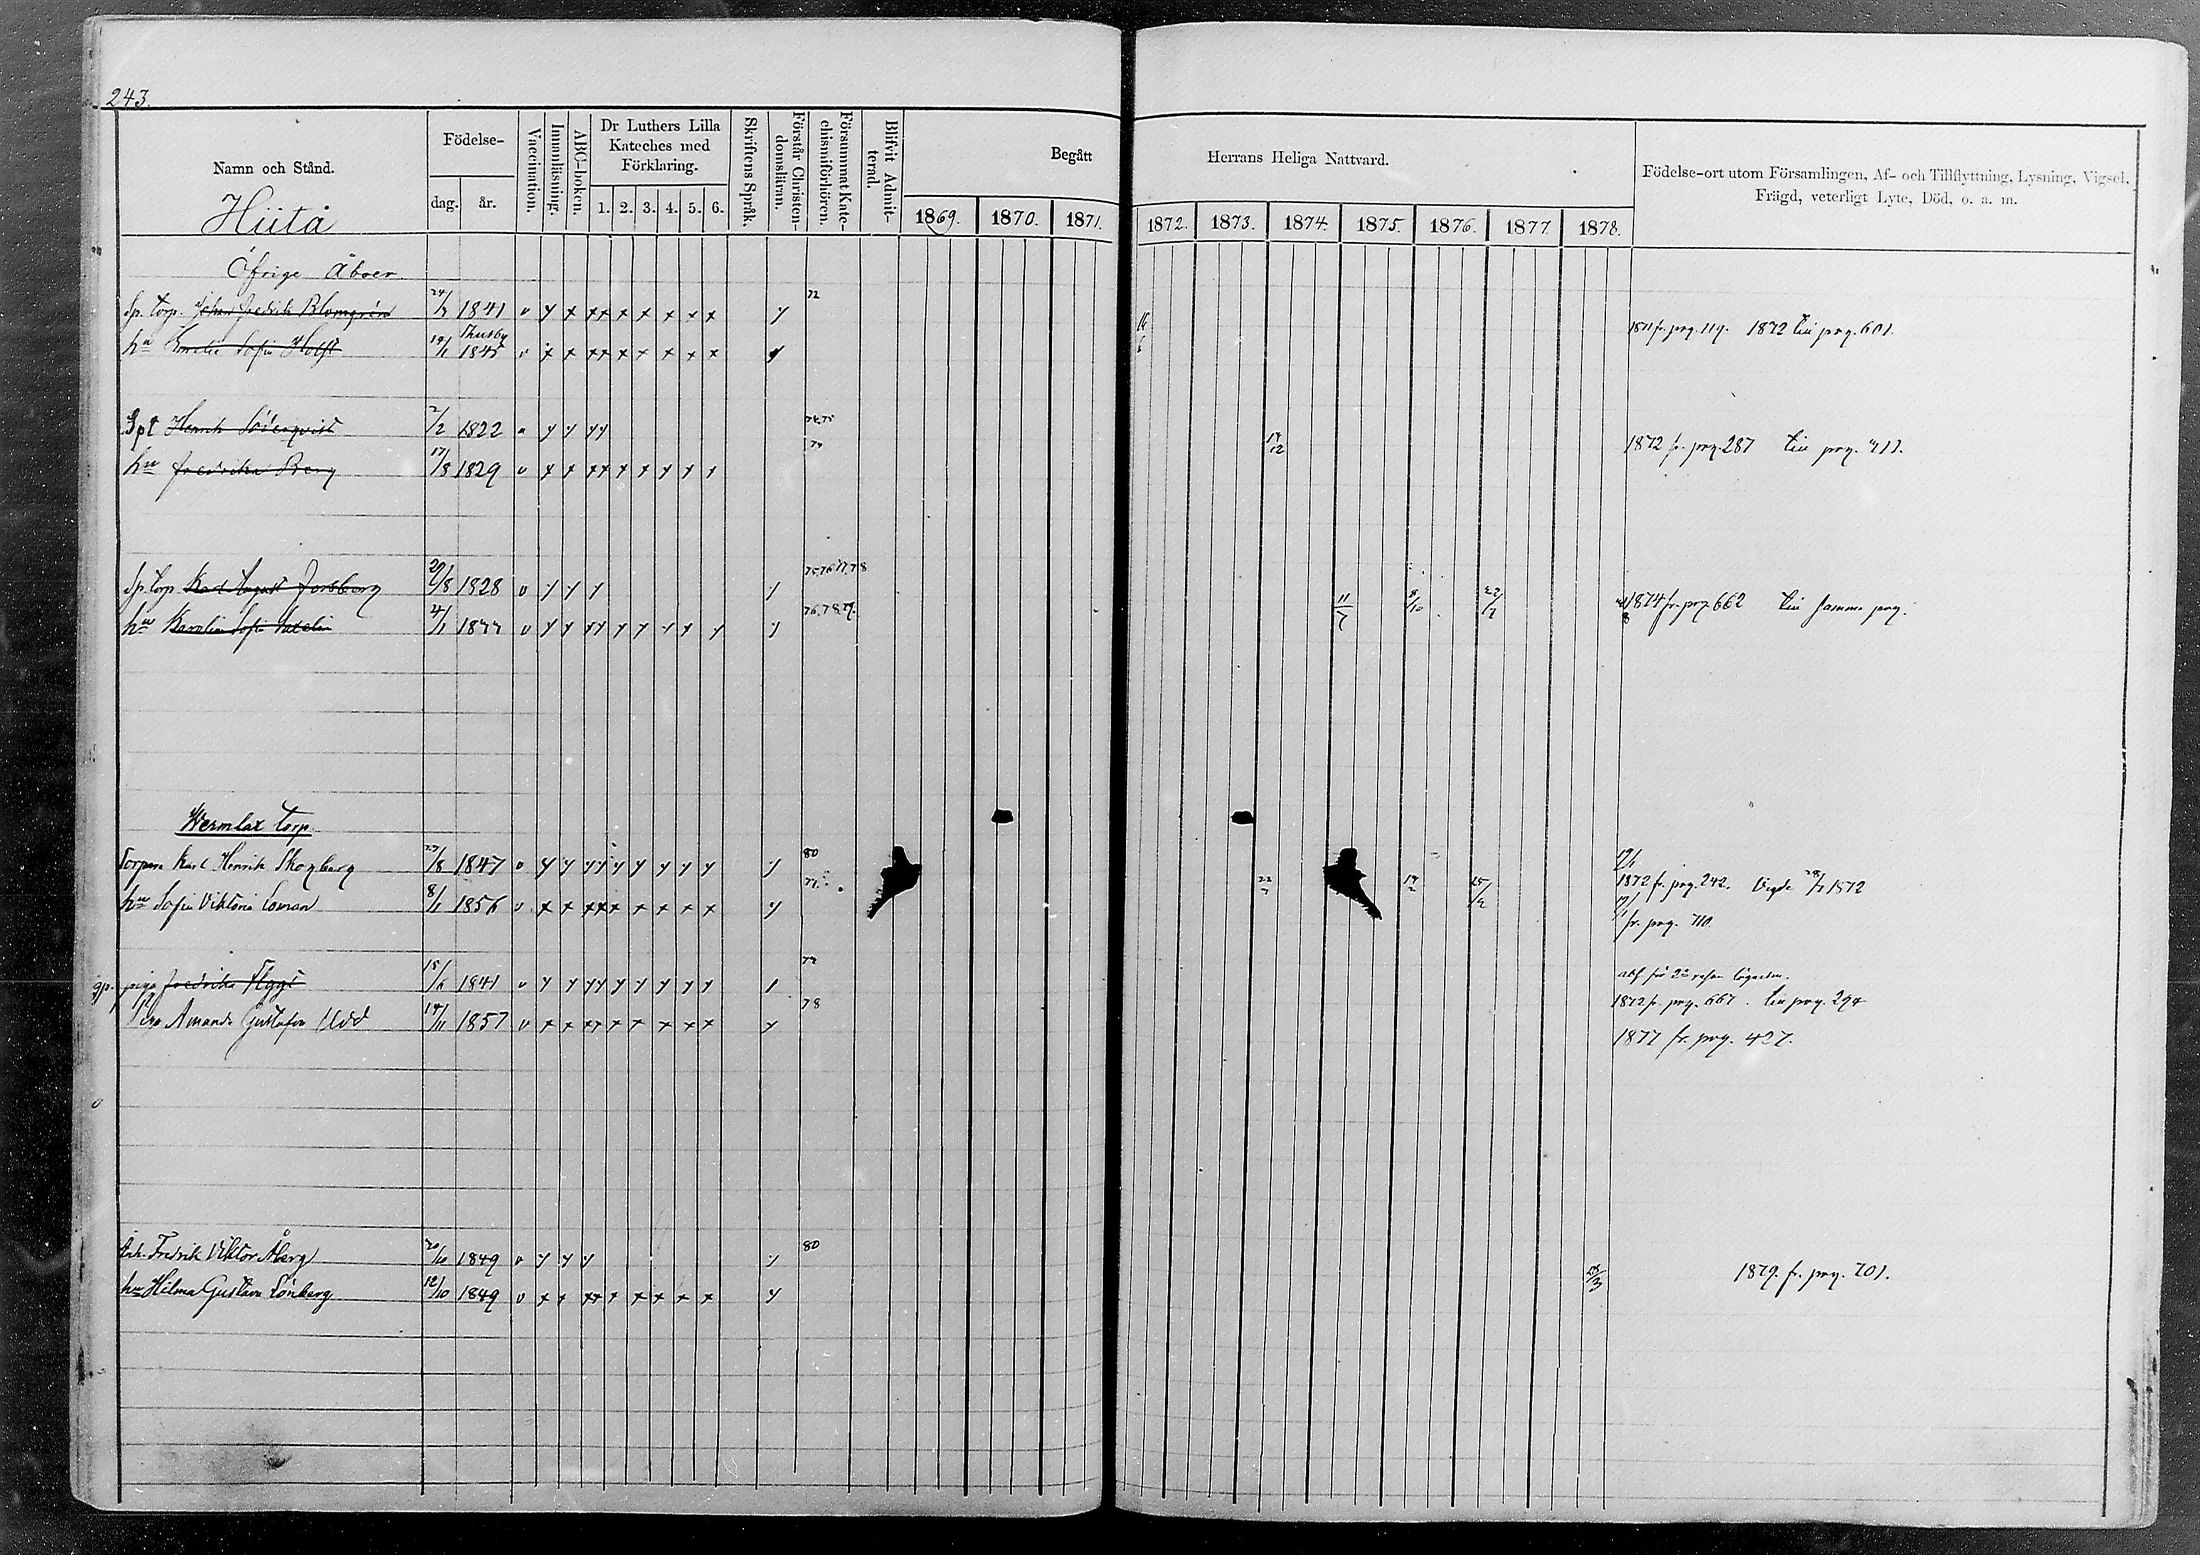 243.
Namn och Stånd.
Hiitå
Födelse-
dag. år.
Vaccination.
Innanläsning.
ABC-boken.
Dr Luthers Lilla Kateches med Förklaring.
1. 2. 3. 4. 5. 6.
Skriftens Språk.
Förstår Christendomsläran.
Försummat Katechismiförhören.
Blifvit Admitterad.
Begått Herrans Heliga Nattvard.
1869. 1870. 1871. 1872. 1873. 1874. 1875. 1876. 1877. 1878.
Födelse-ort utom Församlingen, Af- och Tillflyttning, Lysning, Vigsel,
Frägd, veterligt Lyte, Död, o. a. m.
Öfrige Åboer
Sp. torp. Johan Fredrik Blomgrén 24/3 1841 v y x xx x x x x x y 72 fr. pag. 119. 1872 till pag. 601.
hu Emelie Sofia Holst Thusby 1845 v x x xx x x x x x y
Spt Henrik Söderqvist 2/2 1822 y y yy 1872 fr. pag. 287 till pag. 711.
hu Fredrika Berg 17/8 1829 v x x xx x x x x x
Sp. torp. Karl August Forsberg 29/8 1828 v y y y y 75,76,77,78 1874 fr. pag 662 till samma pag.
hu Karolin Sofia 4/1 v y y xx y y y y y y 76,78,79. 11/7 8/10 22/7
Wermlax torp.
Torpare Karl Henrik Skogberg 27/8 1847 v y y yy y y y y y y 80 1872 fr. pag. 242. Vigde
hu Sofia Viktoria Loman 8/1 1856 v x x xx x x x x x y fr. pag. 710
piga Fredrika Flygt 15/6 1841 v y y yy y y y y y 1872 fr. pag. 667. till pag. 294
Piga Amanda Gustafva 14/11 1857 v x x xx x x x x x 78 1877 fr. pag. 427.
Fredrik Viktor Åberg 20/10 1849 v y y y y 80
hu Hilma Gustava Lönberg 12/10 1849 v x x xx x x x x x y 1879. fr. pag. 701.